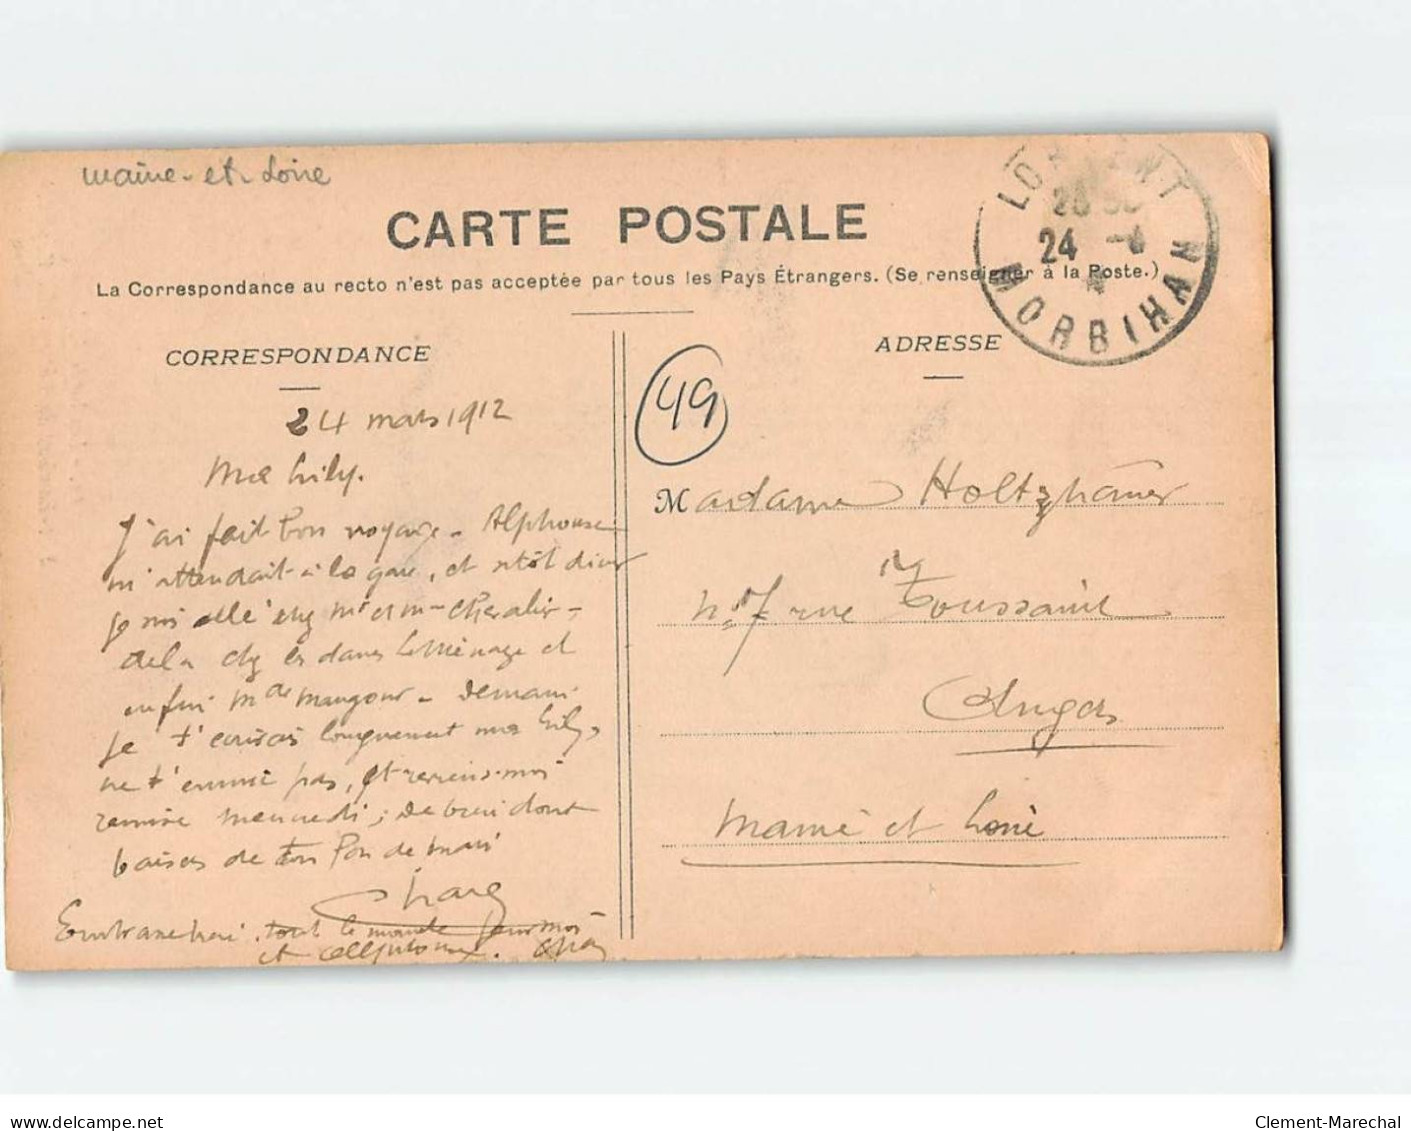 maine-et-Loire
CARTE POSTALE
La Correspondance au recto n'est pas acceptée par tous les Pays Étrangers. (Se renseigner à la Poste.)
LORIENT
24
MORBIHAN
CORRESPONDANCE
24 mars 1912
Ma Lily.
J'ai fait bon voyage - Alphonse
m'attendait à la gare, et sitôt diner
je suis allé chez Mr et Mme Chevalier -
de là chez les dames Lemenage et
enfin Mde - demain
je t'écrirai longuement ma Lily,
ne t'ennuie pas, et reviens-moi
mercredi;
baisers de ton
tout le monde pour moi
et
ADRESSE
49
Madame Holtzhämer
n° 7 rue Toussaint
Angers
Maine et Loire
delcampe.net
Clement-Marechal